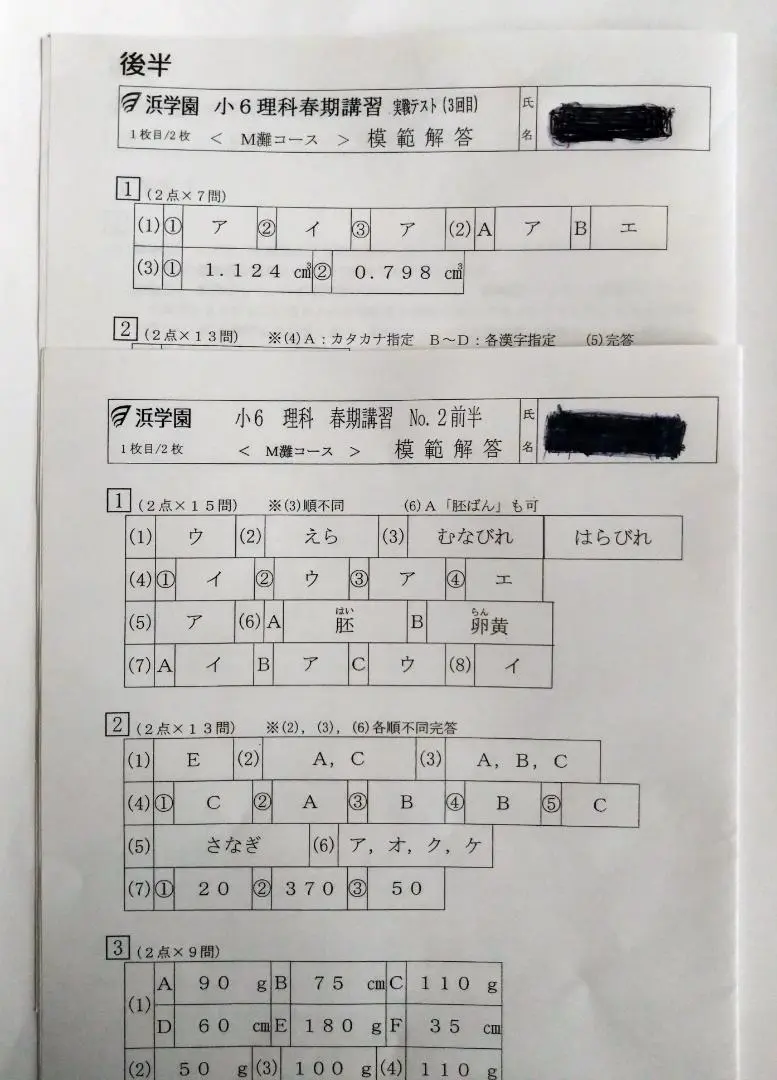 後半
浜学園 小6理科春期講習 実戦テスト(3回目) 氏名
1枚目/2枚 < M灘コース > 模範解答
1 (2点×7問)
(1)① ア ② イ ③ ア (2) A ア B エ
(3)① 1.124 cm³ ② 0.798 cm³
2 (2点×13問) ※(4)A:カタカナ指定 B~D:各漢字指定 (5)完答
浜学園 小6 理科 春期講習 No.2前半 氏名
1枚目/2枚 < M灘コース > 模範解答
1 (2点×15問) ※(3)順不同 (6)A「胚ばん」も可
(1) ウ (2) えら (3) むなびれ はらびれ
(4)① イ ② ウ ③ ア ④ エ
はい らん
(5) ア (6) A 胚 B 卵黄
(7) A イ B ア C ウ (8) イ
2 (2点×13問) ※(2),(3),(6)各順不同完答
(1) E (2) A, C (3) A, B, C
(4)① C ② A ③ B ④ B ⑤ C
(5) さなぎ (6) ア, オ, ク, ケ
(7)① 20 ② 370 ③ 50
3 (2点×9問)
(1) A 90 g B 75 cm C 110 g
D 60 cm E 180 g F 35 cm
(2) 50 g (3) 100 g (4) 110 g